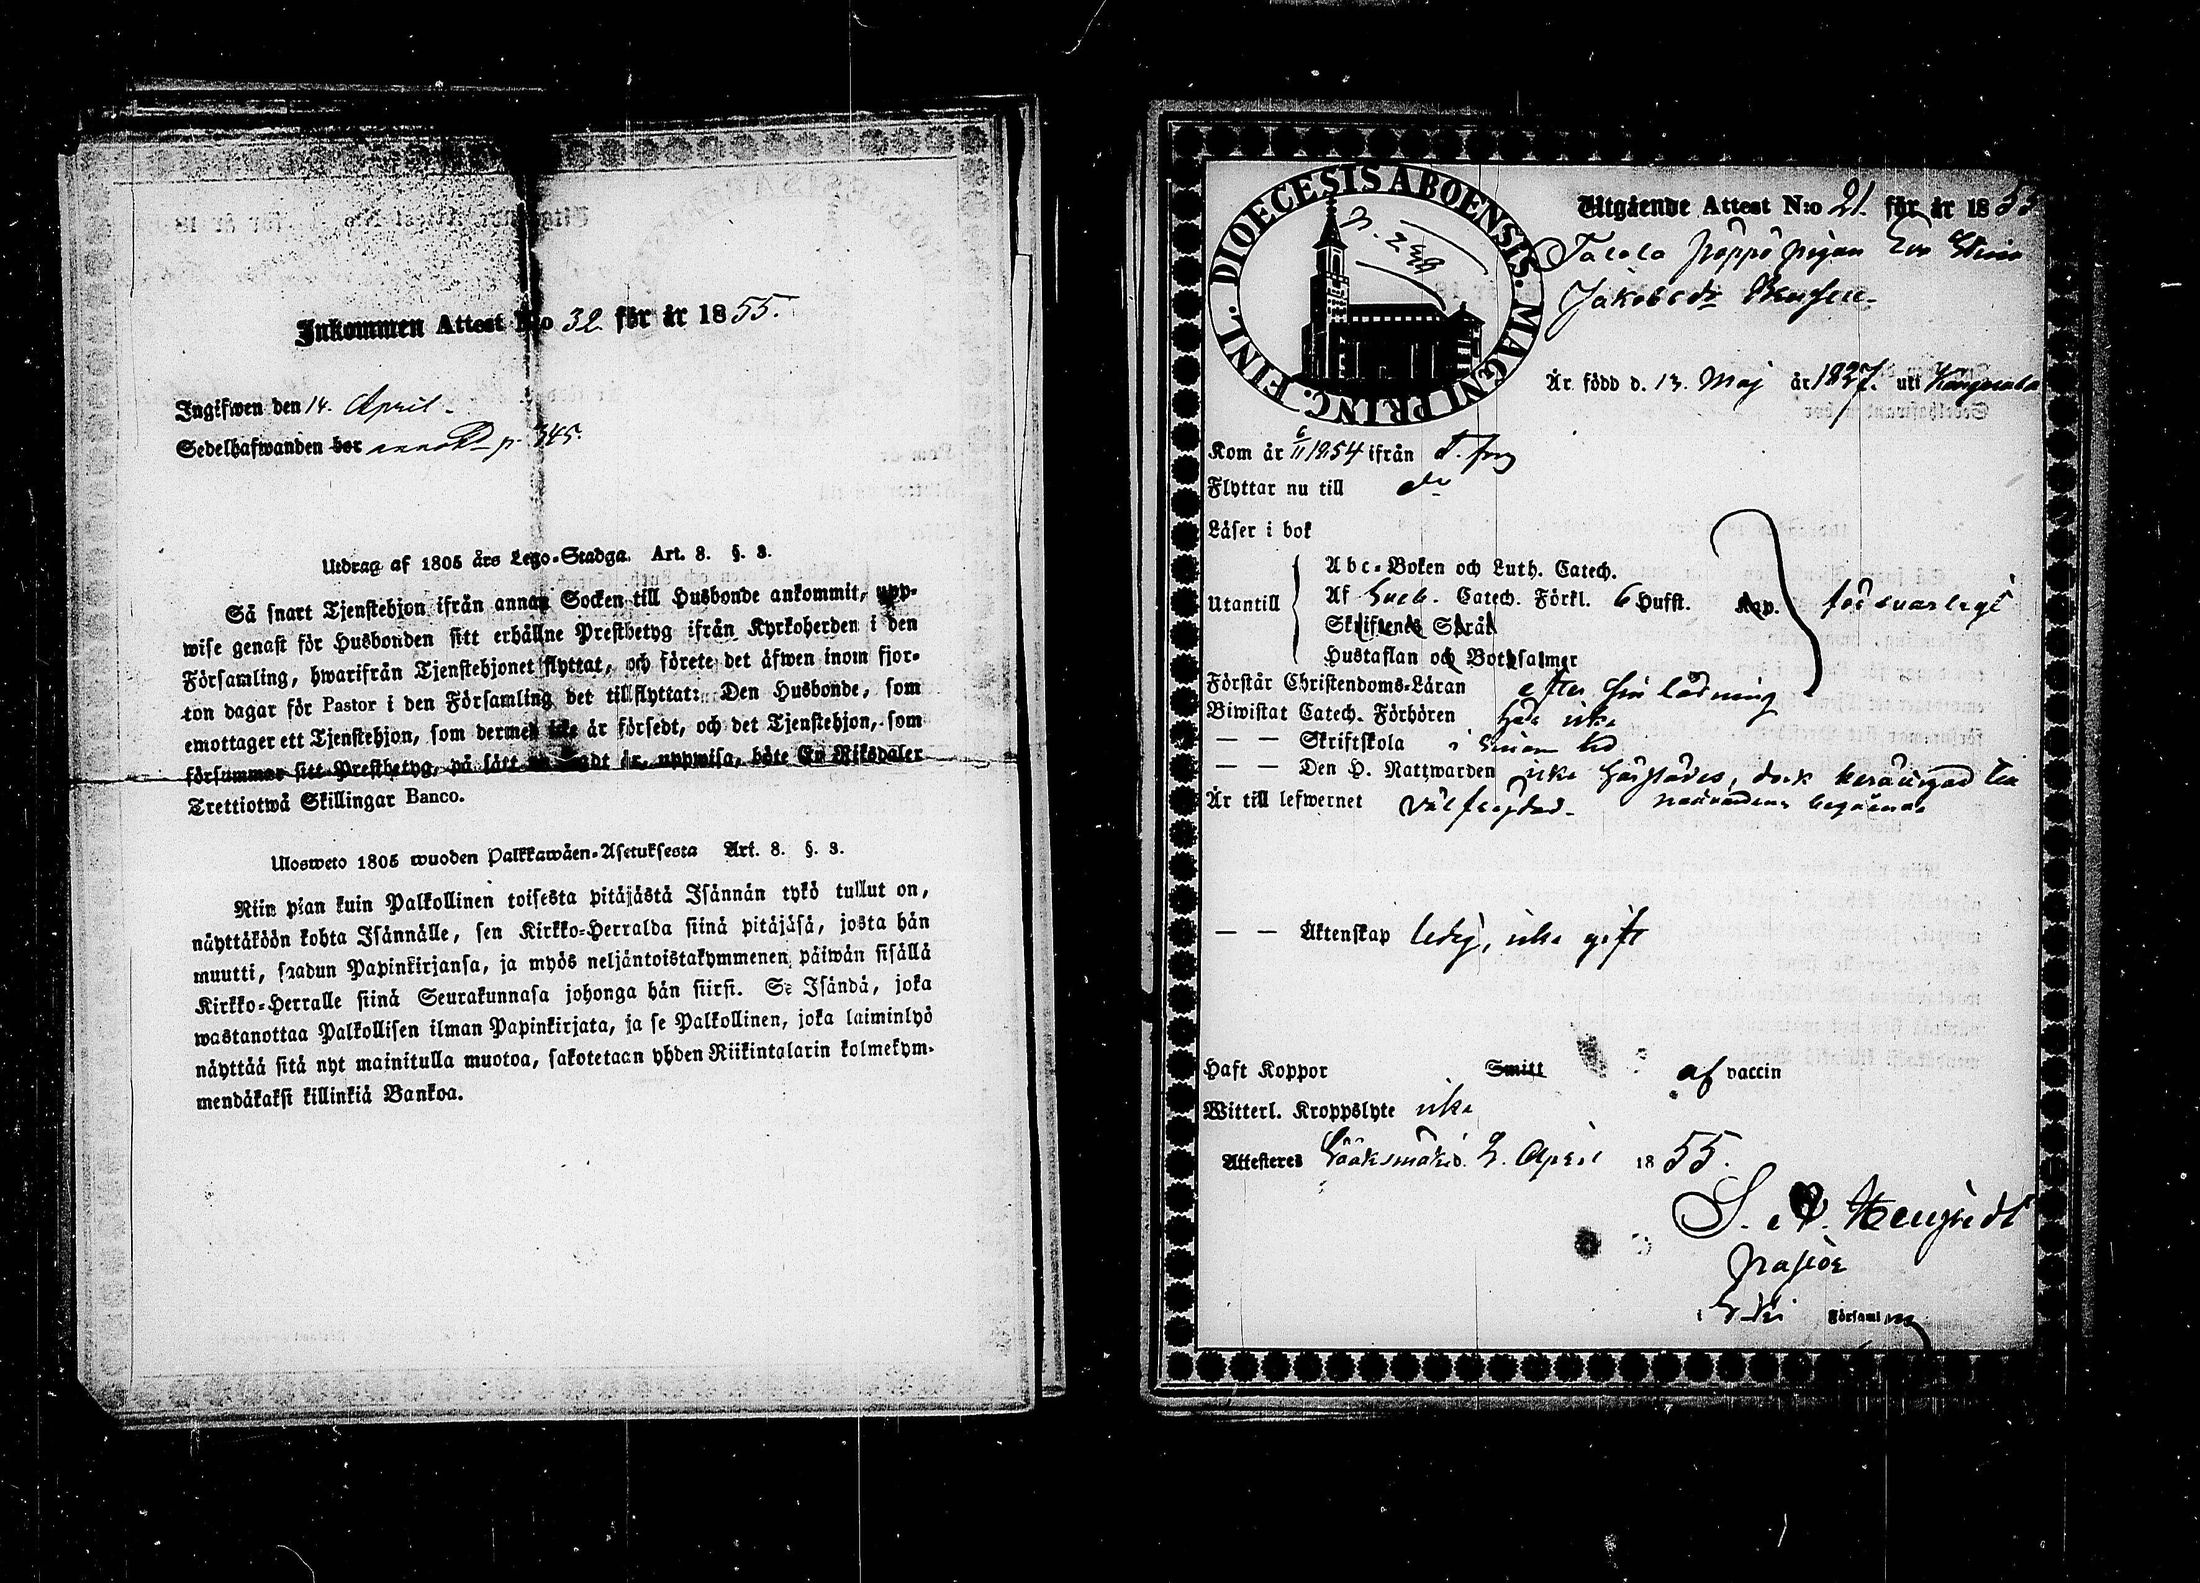 Inkommen Attest N:o 32. för år 1855.
Ingifwen den 14. April.
Sedelhafwanden bor p. 345.
Utdrag af 1805 års Lego-Stadga. Art. 8. §. 3.
Så snart Tjenstehjon ifrån annan Socken till Husbonde ankommit, upp-
wise genast för Husbonden sitt erhållne Prestbetyg ifrån Kyrkoherden i den
Församling, hwarifrån Tjenstehjonet flyttat, och förete det äfwen inom fjor-
ton dagar för Pastor i den Församling det tillflyttat: Den Husbonde, som
emottager ett Tjenstehjon, som dermed icke är försedt, och det Tjenstehjon, som
försummar sitt Prestbetyg, på sätt nu sagdt är, uppwisa, böte En Riksdaler
Trettiotwå Skillingar Banco.
Ulosweto 1805 wuoden Palkkawäen-Asetuksesta Art. 8. §. 3.
Niin pian kuin Palkollinen toisesta pitäjästä Isännän tykö tullut on,
näyttäköön kohta Isännälle, sen Kirkko-Herralda siinä pitäjäsä, josta hän
muutti, saadun Papinkirjansa, ja myös neljäntoistakymmenen päiwän sisällä
Kirkko-Herralle siinä Seurakunnasa johonga hän siirsi. Se Isändä, joka
wastanottaa Palkollisen ilman Papinkirjata, ja se Palkollinen, joka laiminlyö
näyttää sitä nyt mainitulla muotoa, sakotetaan yhden Riikintalarin kolmekym-
mendäkaksi killinkiä Bankoa.
DIOECESIS ABOENSIS. MAGNI PRINC. FINL.
Utgående Attest N:o 21. för år 1855
Talola Pöppö pigan Eva Stina
Jakobsdr
Är född d. 13. Maj år 1837. uti Kangasala
Kom år 6/11 1854 ifrån
Flyttar nu till do
Läser i bok
Utantill
Abc-Boken och Luth. Catech.
Af Sveb. Catech. Förkl. 6 Hufst. Kap. försvarligt
Skriftenes Språk
Hustaflan och Botpsalmer
Förstår Christendoms-Läran efter sin läsning
Biwistat Catech. Förhören här icke
— — Skriftskola i sinom tid
— — Den H. Nattwarden icke härstädes, dock berättigad till
nattvardens begående
Är till lefwernet välfrejdad.
— — Äktenskap ledig, icke gift
Haft Koppor Smitt af vaccin
Witterl. Kroppslyte icke
Attesteras Sääksmäki d. 2. April 1855.
pastor
i Församling